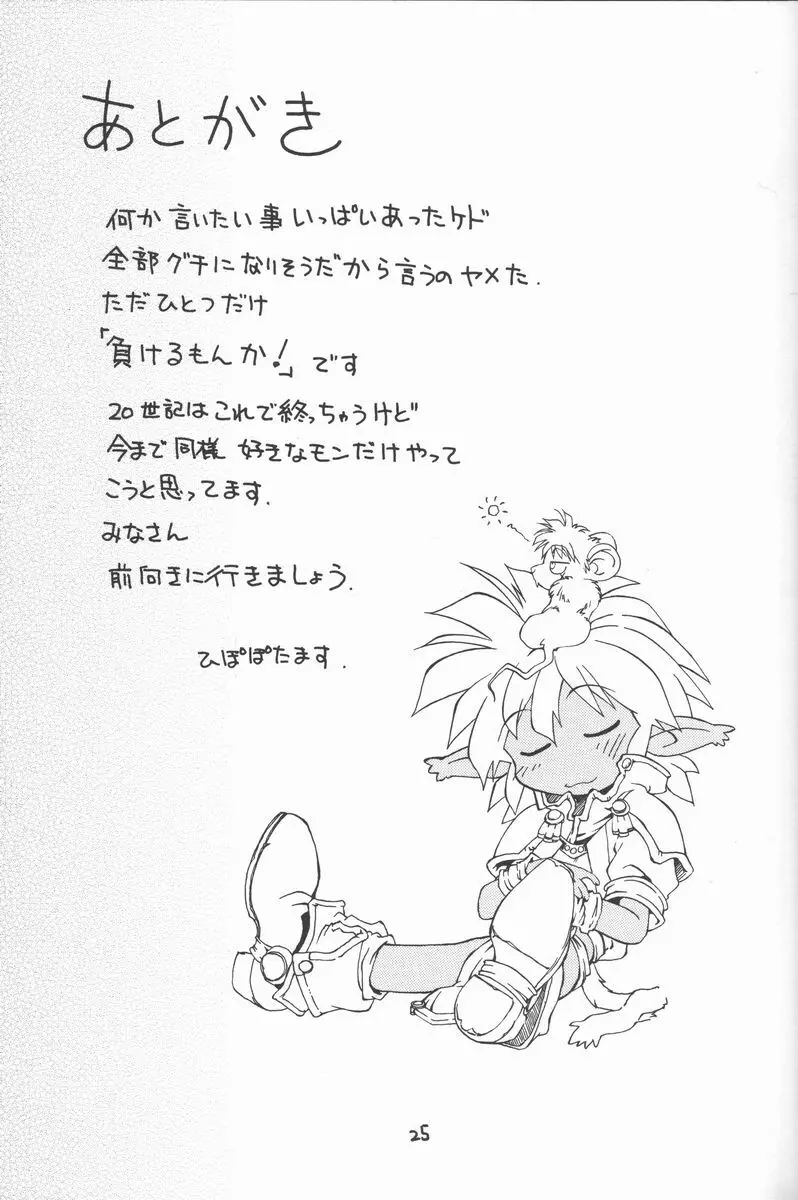 あとがき
何か言いたい事いっぱいあったケド
全部グチになりそうだから言うのヤメた.
ただひとつだけ
「負けるもんか!」です
20世記はこれで終っちゃうけど
今まで同様 好きなモンだけやって
こうと思ってます.
みなさん
前向きに行きましょう.
ひぽぽたます.
25